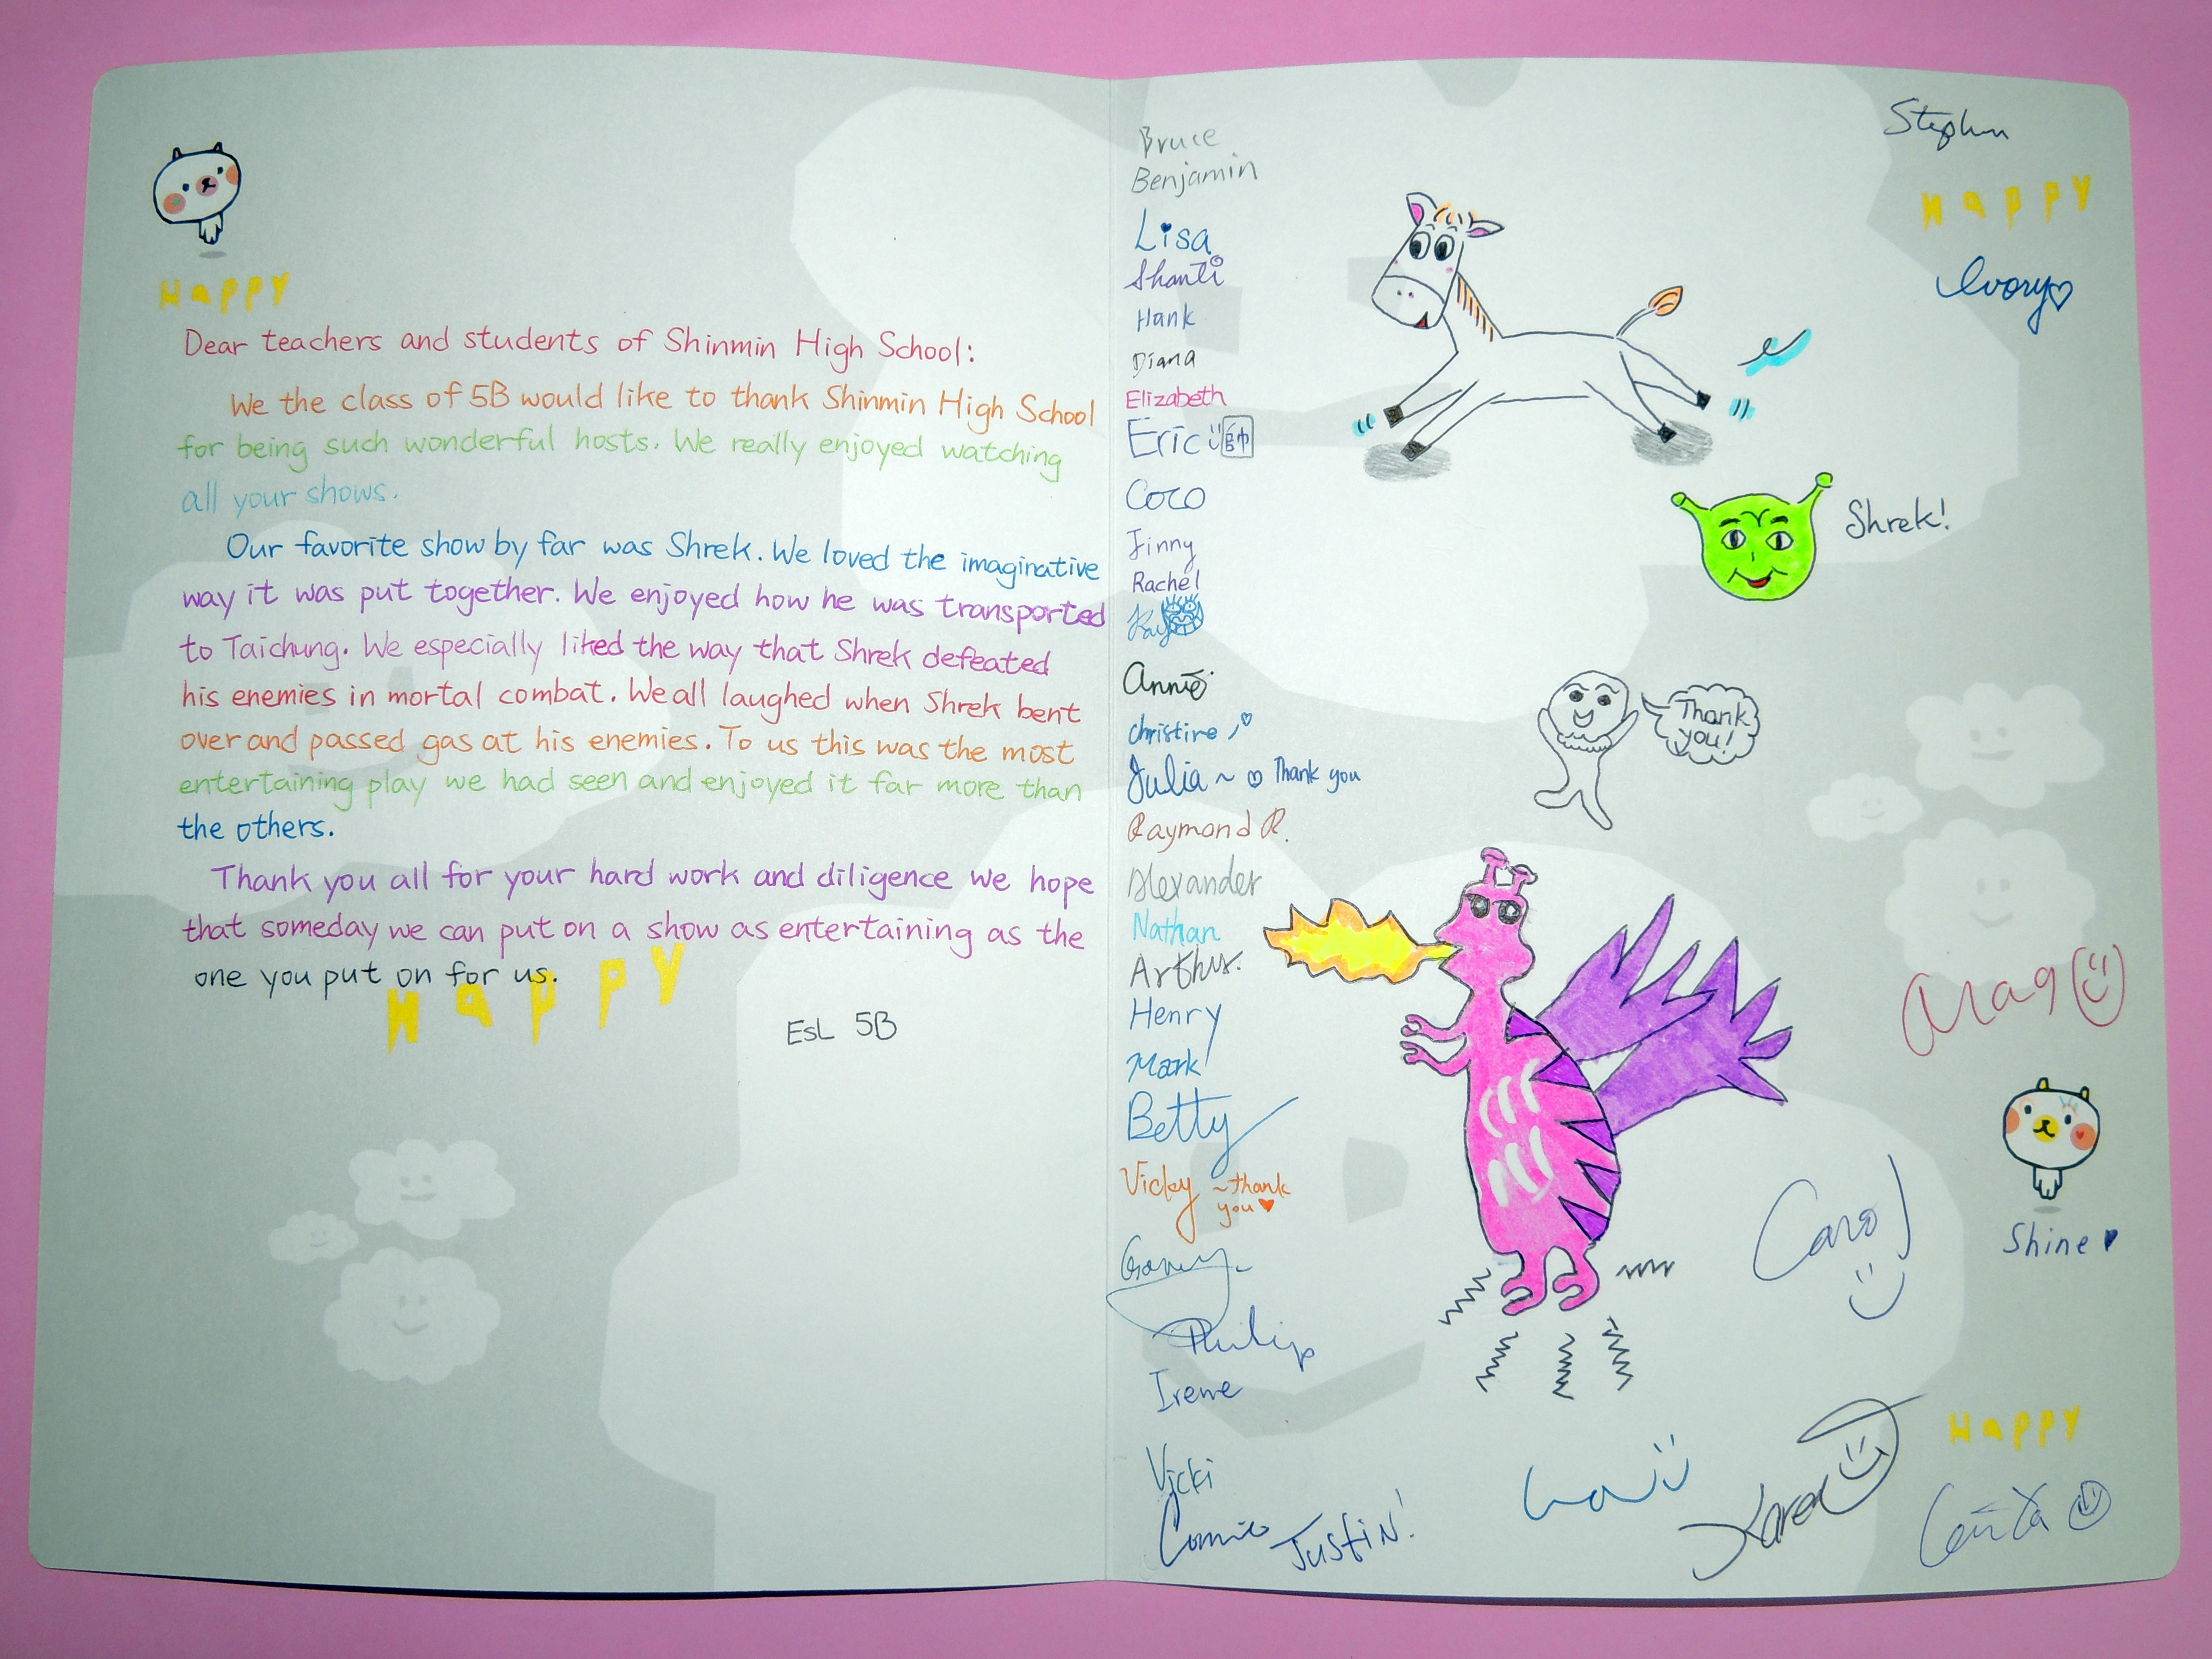 Happy
Dear teachers and students of Shinmin High School:
We the class of 5B would like to thank Shinmin High School
for being such wonderful hosts. We really enjoyed watching
all your shows.
Our favorite show by far was Shrek. We loved the imaginative
way it was put together. We enjoyed how he was transported
to Taichung. We especially liked the way that Shrek defeated
his enemies in mortal combat. We all laughed when Shrek bent
over and passed gas at his enemies. To us this was the most
entertaining play we had seen and enjoyed it far more than
the others.
Thank you all for your hard work and diligence we hope
that someday we can put on a show as entertaining as the
one you put on for us.
Happy
EsL 5B
Bruce
Benjamin
Lisa
Shanti
Hank
Diana
Elizabeth
Eric 帥
Coco
Jinny
Rachel
Kay
Annie
christine
Julia ~ Thank you
Raymond R.
Alexander
Nathan
Henry
Mark
Betty
Vicky ~thank
you
Philip
Irene
Vicki
Connie
Justin!
Stephen
Happy
Ivory
Shrek!
Thank
you!
Carol
Shine
Karen
Happy